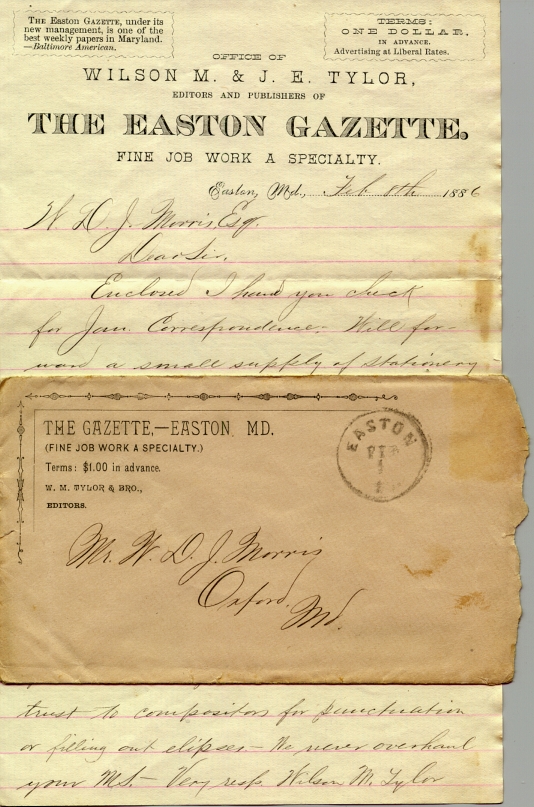 The Easton GAZETTE, under its
new management, is one of the
best weekly papers in Maryland.
—Baltimore American.
TERMS:
ONE DOLLAR,
IN ADVANCE.
Advertising at Liberal Rates.
OFFICE OF
WILSON M. & J. E. TYLOR,
EDITORS AND PUBLISHERS OF
THE EASTON GAZETTE.
FINE JOB WORK A SPECIALTY.
Easton, Md., Feb 8th 1886
W. D. J. Morris, Esq.
Dear Sir,
Enclosed I hand you check
for Jan. Correspondence. Will for-
ward a small supply of stationery
THE GAZETTE,—EASTON, MD.
(FINE JOB WORK A SPECIALTY.)
Terms: $1.00 in advance.
W. M. TYLOR & BRO.,
EDITORS.
EASTON
FEB
Mr. W. D. J. Morris
Oxford,
Md.
trust to compositors for punctuation
or filling out elipses — We never overhaul
your MS. — Very resp. Wilson M. Tylor